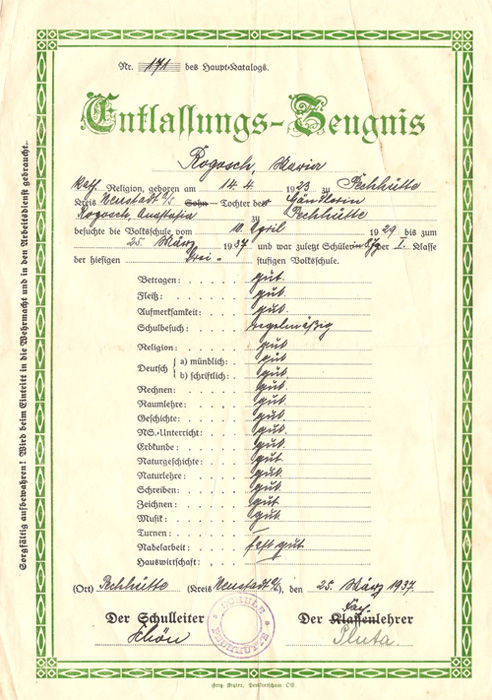 Nr. 171 des Haupt-Katalogs.
Entlassungs-Zeugnis
Rogosch, Maria
Kath. Religion, geboren am 14.4 1923 zu Pechhütte
Kreis Neustadt O/S Sohn - Tochter der Händlerin
Rogosch, Anastasia zu Pechhütte
besuchte die Volksschule vom 10. April 1929 bis zum
25. März 1937 und war zuletzt Schülerin der I. Klasse
der hiesigen Drei-stufigen Volksschule.
Betragen: gut.
Fleiß: gut.
Aufmerksamkeit: gut.
Schulbesuch: regelmäßig
Religion: gut
Deutsch { a) mündlich: gut
b) schriftlich: gut.
Rechnen: gut
Raumlehre: gut.
Geschichte: gut.
NS.-Unterricht: gut.
Erdkunde: gut.
Naturgeschichte: gut
Naturlehre: gut.
Schreiben: gut.
Zeichnen: gut
Musik: gut.
Turnen: —
Nadelarbeit: fast gut
Hauswirtschaft:
(Ort) Pechhütte (Kreis Neustadt O/S), den 25. März 1937.
Der Schulleiter Der Klassenlehrer
Schön Pluta.
SCHULE PECHHÜTTE
Sorgfältig aufbewahren! Wird beim Eintritt in die Wehrmacht und in den Arbeitsdienst gebraucht.